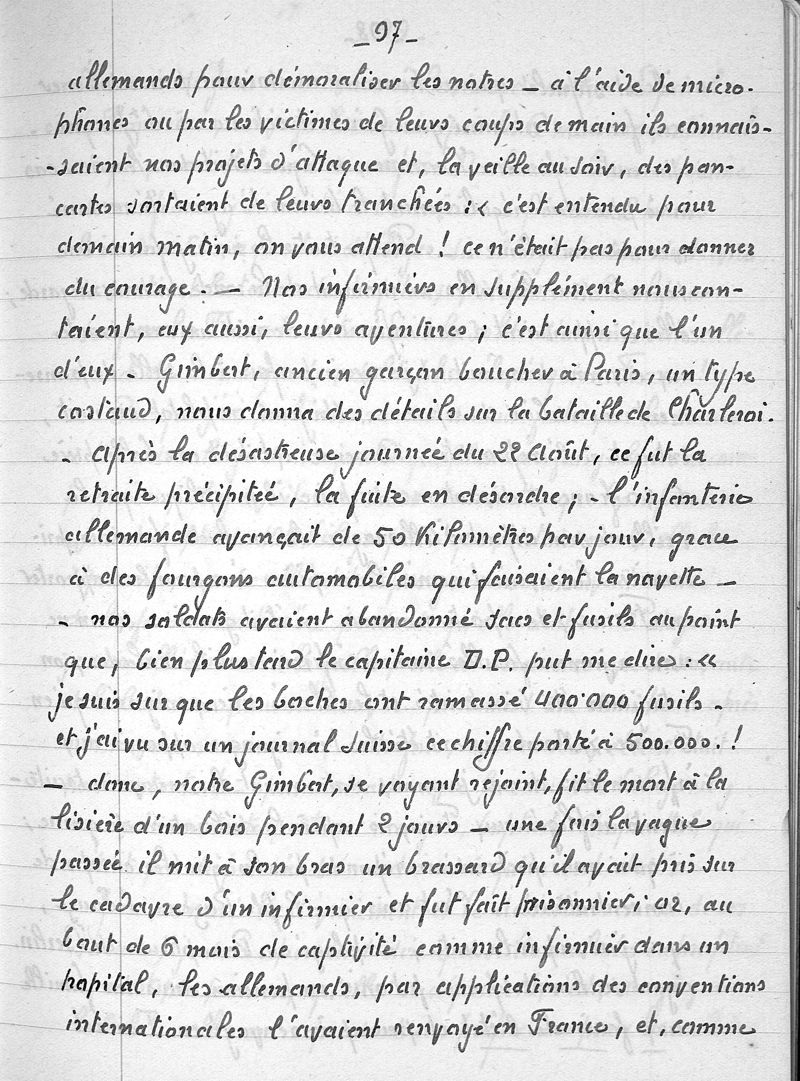 _ 97 _
allemands pour démoraliser les notres _ à l'aide de micro-
phones ou par les victimes de leurs coups de main ils connais-
-saient nos projets d'attaque et, la veille au soir, des pan-
cartes sortaient de leurs tranchées : « c'est entendu pour
demain matin, on vous attend ! ce n'était pas pour donner
du courage. _ Nos infirmiers en supplément nous con-
taient, eux aussi, leurs aventures ; c'est ainsi que l'un
d'eux - Gimbert, ancien garçon boucher à Paris, un type
costaud, nous donna des détails sur la bataille de Charleroi.
- après la désastreuse journeé du 22 Août, ce fut la
retraite précipiteé, la fuite en désordre ; - l'infanterie
allemande avançait de 50 Kilomètres par jour, grace
à des fourgons automobiles qui faisaient la navette _
- nos soldats avaient abandonné sacs et fusils au point
que, bien plus tard le capitaine D.P. put me dire : «
je suis sur que les boches ont ramassé 400.000 fusils -
et j'ai vu sur un journal suisse ce chiffre porté à 500.000. !
_ donc, notre Gimbert, se voyant rejoint, fit le mort à la
lisière d'un bois pendant 2 jours _ une fois la vague
passeé il mit à son bras un brassard qu'il avait pris sur
le cadavre d'un infirmier et fut faît prisonnier ; or, au
bout de 6 mois de captivité comme infirmier dans un
hopital, les allemands, par applications des conventions
internationales l'avaient renvoyé en France, et, comme